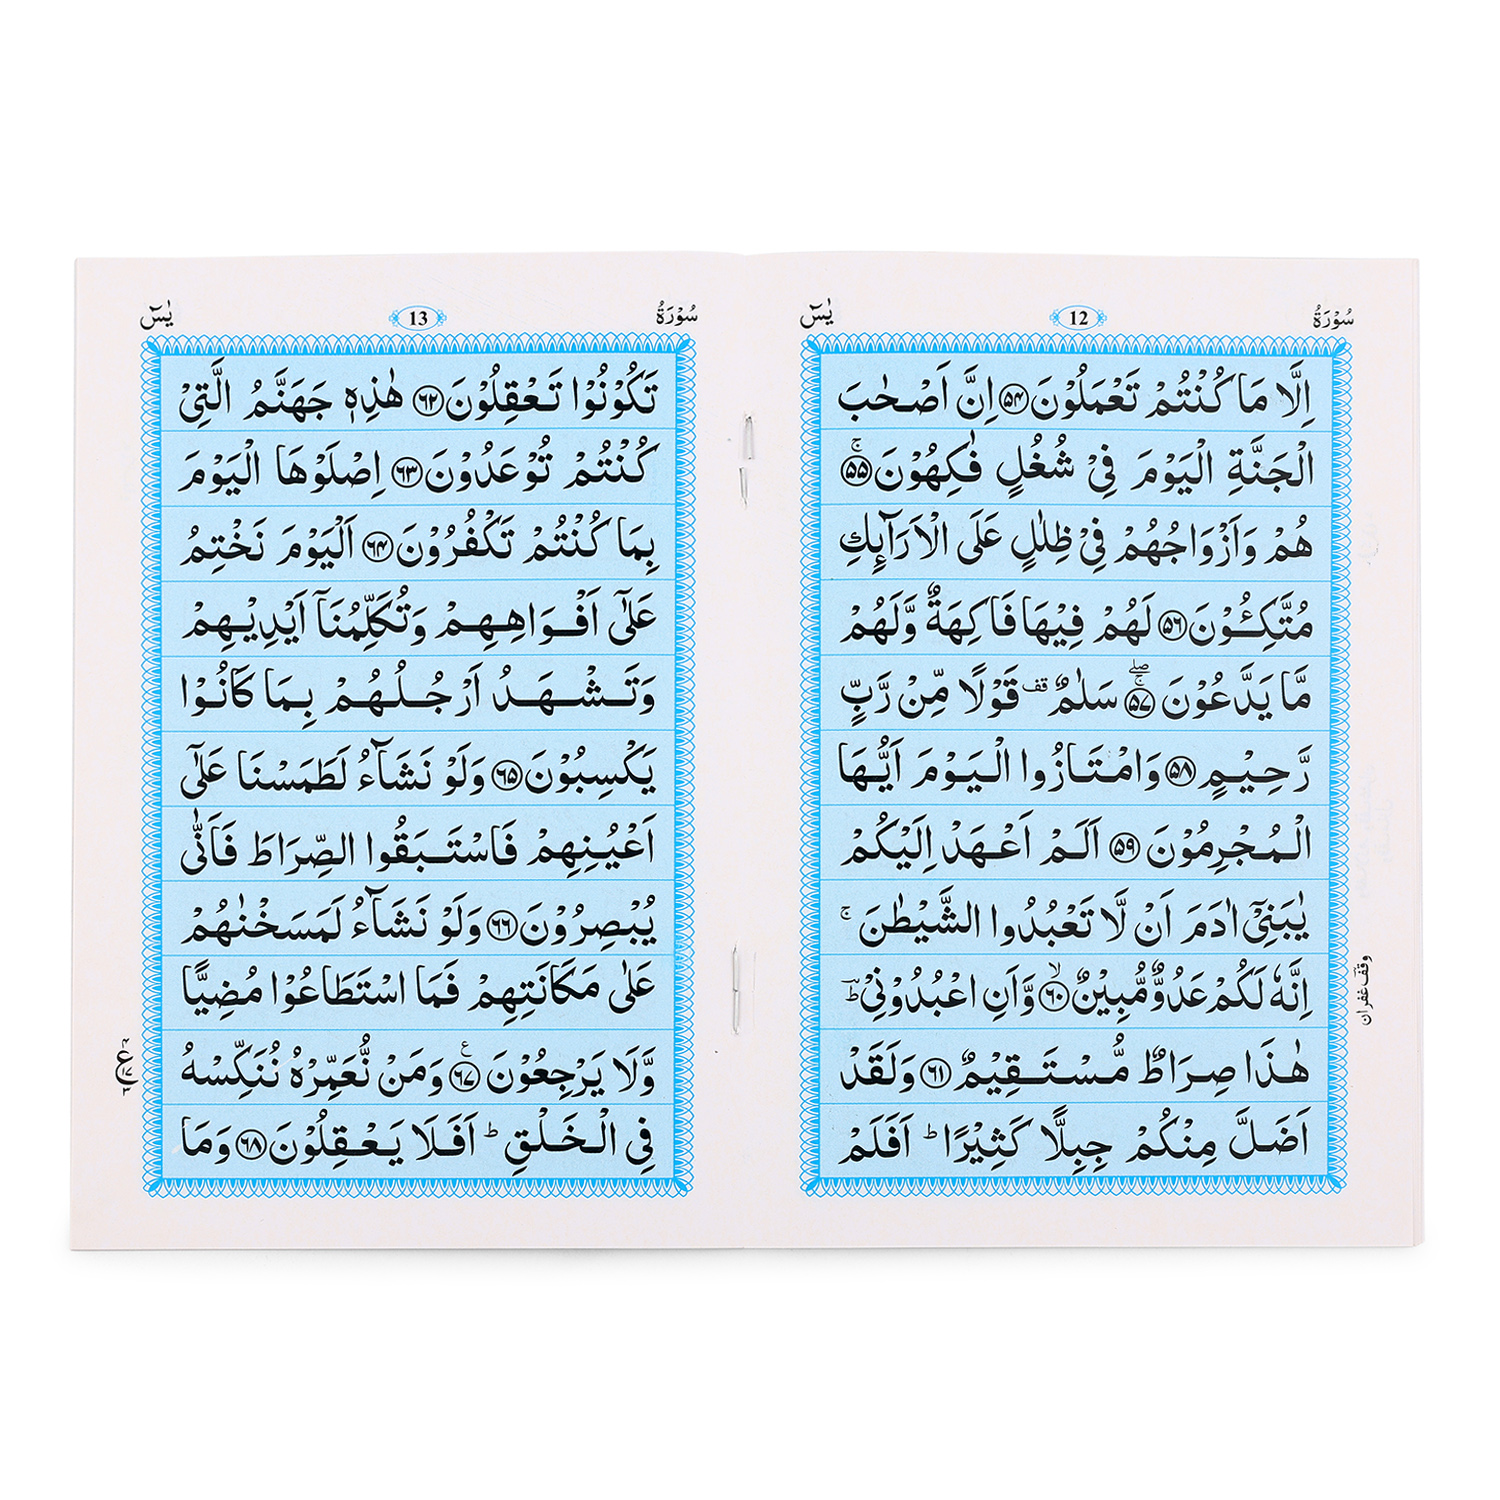 سُوْرَةُ
12
يٰسٓ
اِلَّا مَا كُنْتُمْ تَعْمَلُوْنَ ﴿۵۴﴾ اِنَّ اَصْحٰبَ
الْجَنَّةِ الْيَوْمَ فِيْ شُغُلٍ فٰكِهُوْنَ ﴿۵۵﴾ ۚ
هُمْ وَاَزْوَاجُهُمْ فِيْ ظِلٰلٍ عَلَى الْاَرَآئِكِ
مُتَّكِـُٔوْنَ ﴿۵۶﴾ لَهُمْ فِيْهَا فَاكِهَةٌ وَّلَهُمْ
مَّا يَدَّعُوْنَ ﴿۵۷﴾ ۚۖ سَلٰمٌ قف قَوْلًا مِّنْ رَّبٍّ
رَّحِيْمٍ ﴿۵۸﴾ وَامْتَازُوا الْيَوْمَ اَيُّهَا
الْمُجْرِمُوْنَ ﴿۵۹﴾ اَلَمْ اَعْهَدْ اِلَيْكُمْ
يٰبَنِيْٓ اٰدَمَ اَنْ لَّا تَعْبُدُوا الشَّيْطٰنَ ۚ
اِنَّهٗ لَكُمْ عَدُوٌّ مُّبِيْنٌ ﴿۶۰﴾ ۙ وَّاَنِ اعْبُدُوْنِيْ ؕ
وقف غفران
هٰذَا صِرَاطٌ مُّسْتَقِيْمٌ ﴿۶۱﴾ وَلَقَدْ
اَضَلَّ مِنْكُمْ جِبِلًّا كَثِيْرًا ؕ اَفَلَمْ
سُوْرَةُ
13
يٰسٓ
تَكُوْنُوْا تَعْقِلُوْنَ ﴿۶۲﴾ هٰذِهٖ جَهَنَّمُ الَّتِيْ
كُنْتُمْ تُوْعَدُوْنَ ﴿۶۳﴾ اِصْلَوْهَا الْيَوْمَ
بِمَا كُنْتُمْ تَكْفُرُوْنَ ﴿۶۴﴾ اَلْيَوْمَ نَخْتِمُ
عَلٰٓى اَفْوَاهِهِمْ وَتُكَلِّمُنَآ اَيْدِيْهِمْ
وَتَشْهَدُ اَرْجُلُهُمْ بِمَا كَانُوْا
يَكْسِبُوْنَ ﴿۶۵﴾ وَلَوْ نَشَآءُ لَطَمَسْنَا عَلٰٓى
اَعْيُنِهِمْ فَاسْتَبَقُوا الصِّرَاطَ فَاَنّٰى
يُبْصِرُوْنَ ﴿۶۶﴾ وَلَوْ نَشَآءُ لَمَسَخْنٰهُمْ
عَلٰى مَكَانَتِهِمْ فَمَا اسْتَطَاعُوْا مُضِيًّا
وَّلَا يَرْجِعُوْنَ ﴿۶۷﴾ ع وَمَنْ نُّعَمِّرْهُ نُنَكِّسْهُ
فِي الْخَلْقِ ؕ اَفَلَا يَعْقِلُوْنَ ﴿۶۸﴾ وَمَا